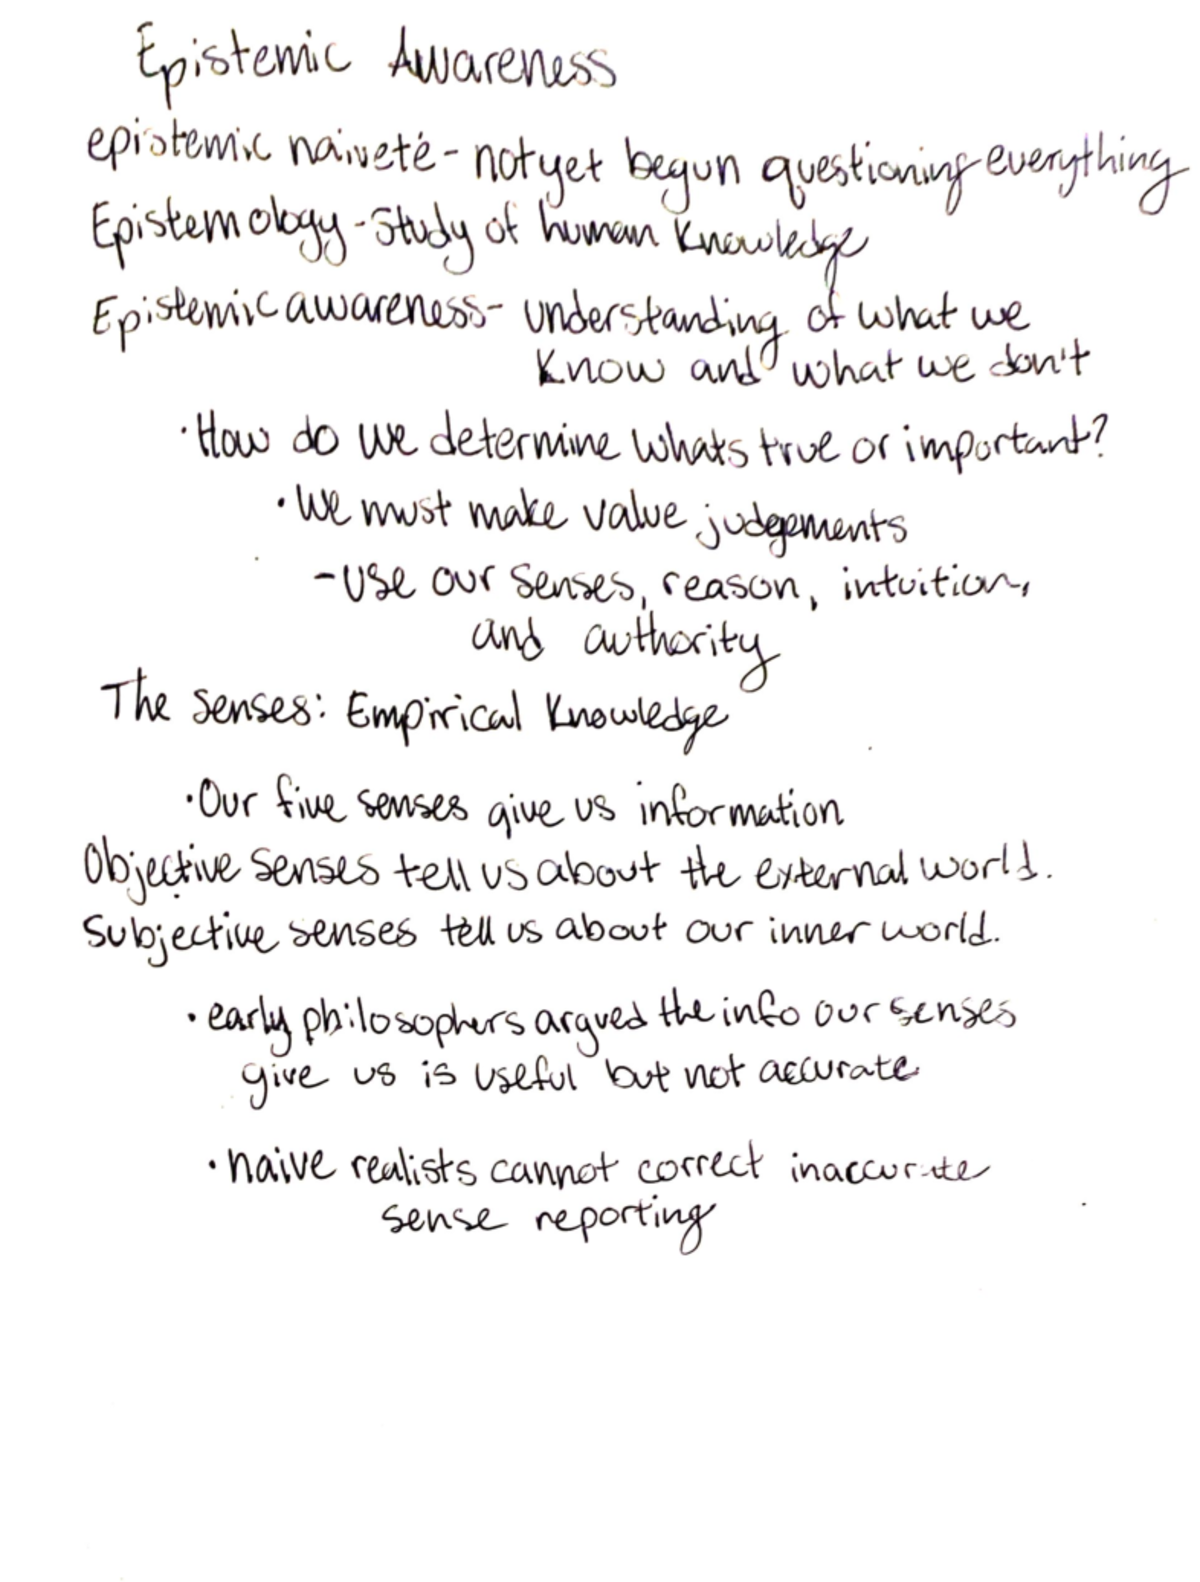 Epistemic Awareness
epistemic naiveté - not yet begun questioning everything
Epistemology - Study of human knowledge
Epistemic awareness - understanding of what we
know and what we don't
· How do we determine whats true or important?
· We must make value judgements
- use our senses, reason, intuition,
and authority
The senses: Empirical Knowledge
· Our five senses give us information
Objective senses tell us about the external world.
Subjective senses tell us about our inner world.
· early philosophers argued the info our senses
give us is useful but not accurate
· naive realists cannot correct inaccurate
sense reporting